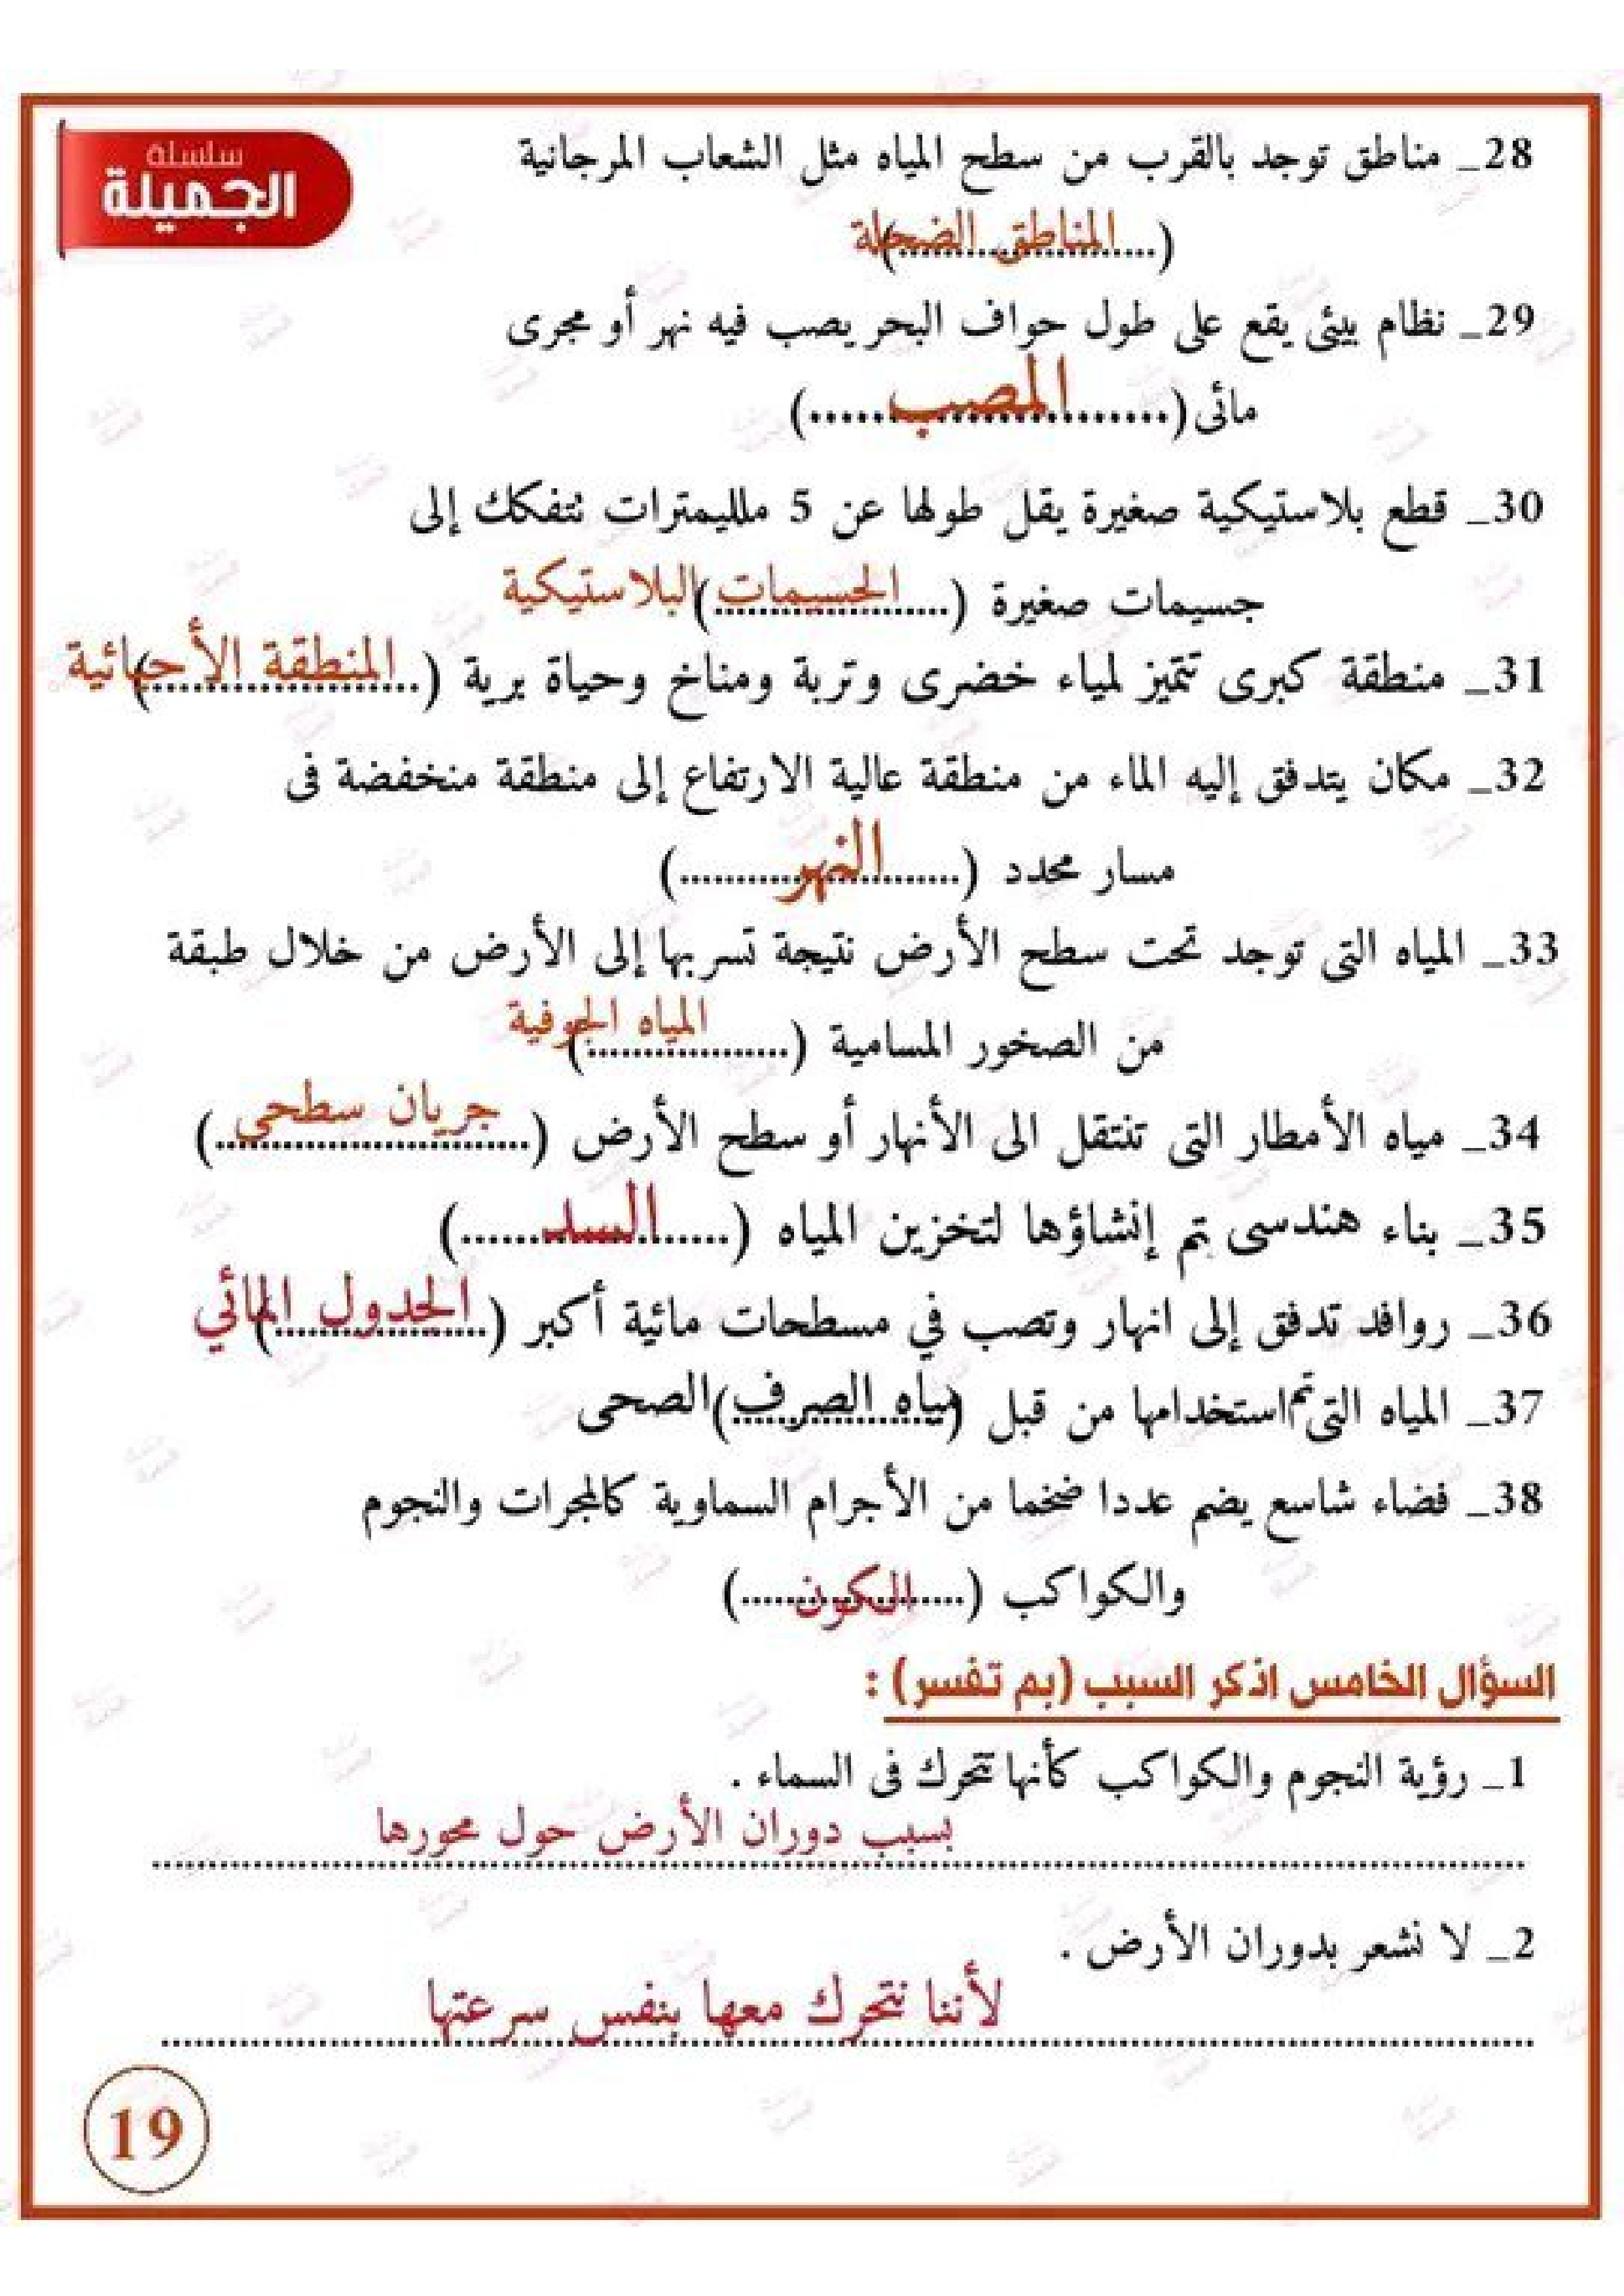 سلسلة
الجميلة
28_ مناطق توجد بالقرب من سطح المياه مثل الشعاب المرجانية
(المناطق الضحلة)
29_ نظام بيئى يقع على طول حواف البحر يصب فيه نهر أو مجرى
مائى (المصب)
30_ قطع بلاستيكية صغيرة يقل طولها عن 5 ملليمترات تتفكك إلى
جسيمات صغيرة (الجسيمات) البلاستيكية
31_ منطقة كبرى تتميز لمياء خضرى وتربة ومناخ وحياة برية (المنطقة الأحيائية)
32_ مكان يتدفق إليه الماء من منطقة عالية الارتفاع إلى منطقة منخفضة فى
مسار محدد (النهر)
33_ المياه التى توجد تحت سطح الأرض نتيجة تسربها إلى الأرض من خلال طبقة
من الصخور المسامية (المياه الجوفية)
34_ مياه الأمطار التى تنتقل الى الأنهار أو سطح الأرض (جريان سطحي)
35_ بناء هندسى تم إنشاؤها لتخزين المياه (السد)
36_ روافد تدفق إلى انهار وتصب في مسطحات مائية أكبر (الجدول المائي)
37_ المياه التى تم استخدامها من قبل (مياه الصرف) الصحى
38_ فضاء شاسع يضم عددا ضخما من الأجرام السماوية كالمجرات والنجوم
والكواكب (الكون)
السؤال الخامس اذكر السبب (بم تفسر) :
1_ رؤية النجوم والكواكب كأنها تتحرك فى السماء .
بسبب دوران الأرض حول محورها
2_ لا نشعر بدوران الأرض .
لأننا نتحرك معها بنفس سرعتها
19